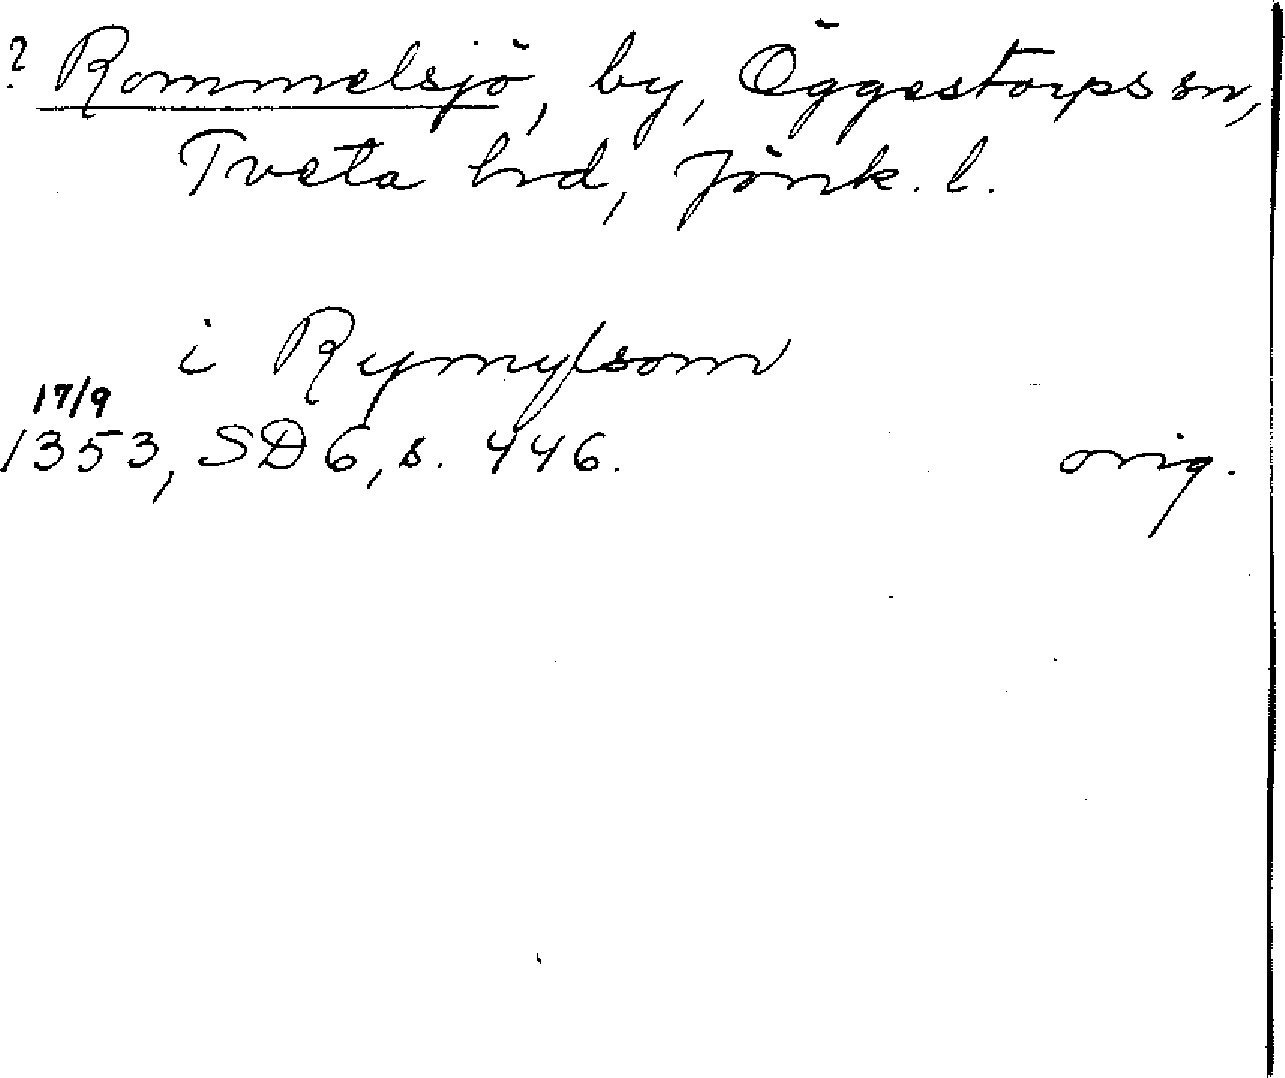 ? Rommelsjö, by, Öggestorps sn,
Tveta hd, Jönk. l.
i Rymylsom
17/9
1353, SD 6, s. 446. orig.